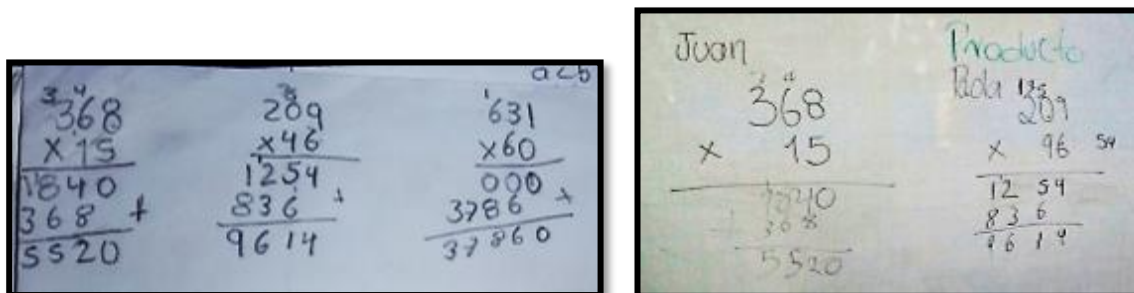 a<b
368
x 15
1840
368 +
5520
209
x46
1254
836 +
9614
631
x60
000
3786 +
37860
Juan
368
x 15
1840
+ 368
5520
Producto
209
x 96 54
12 54
8 3 6
9 6 1 4